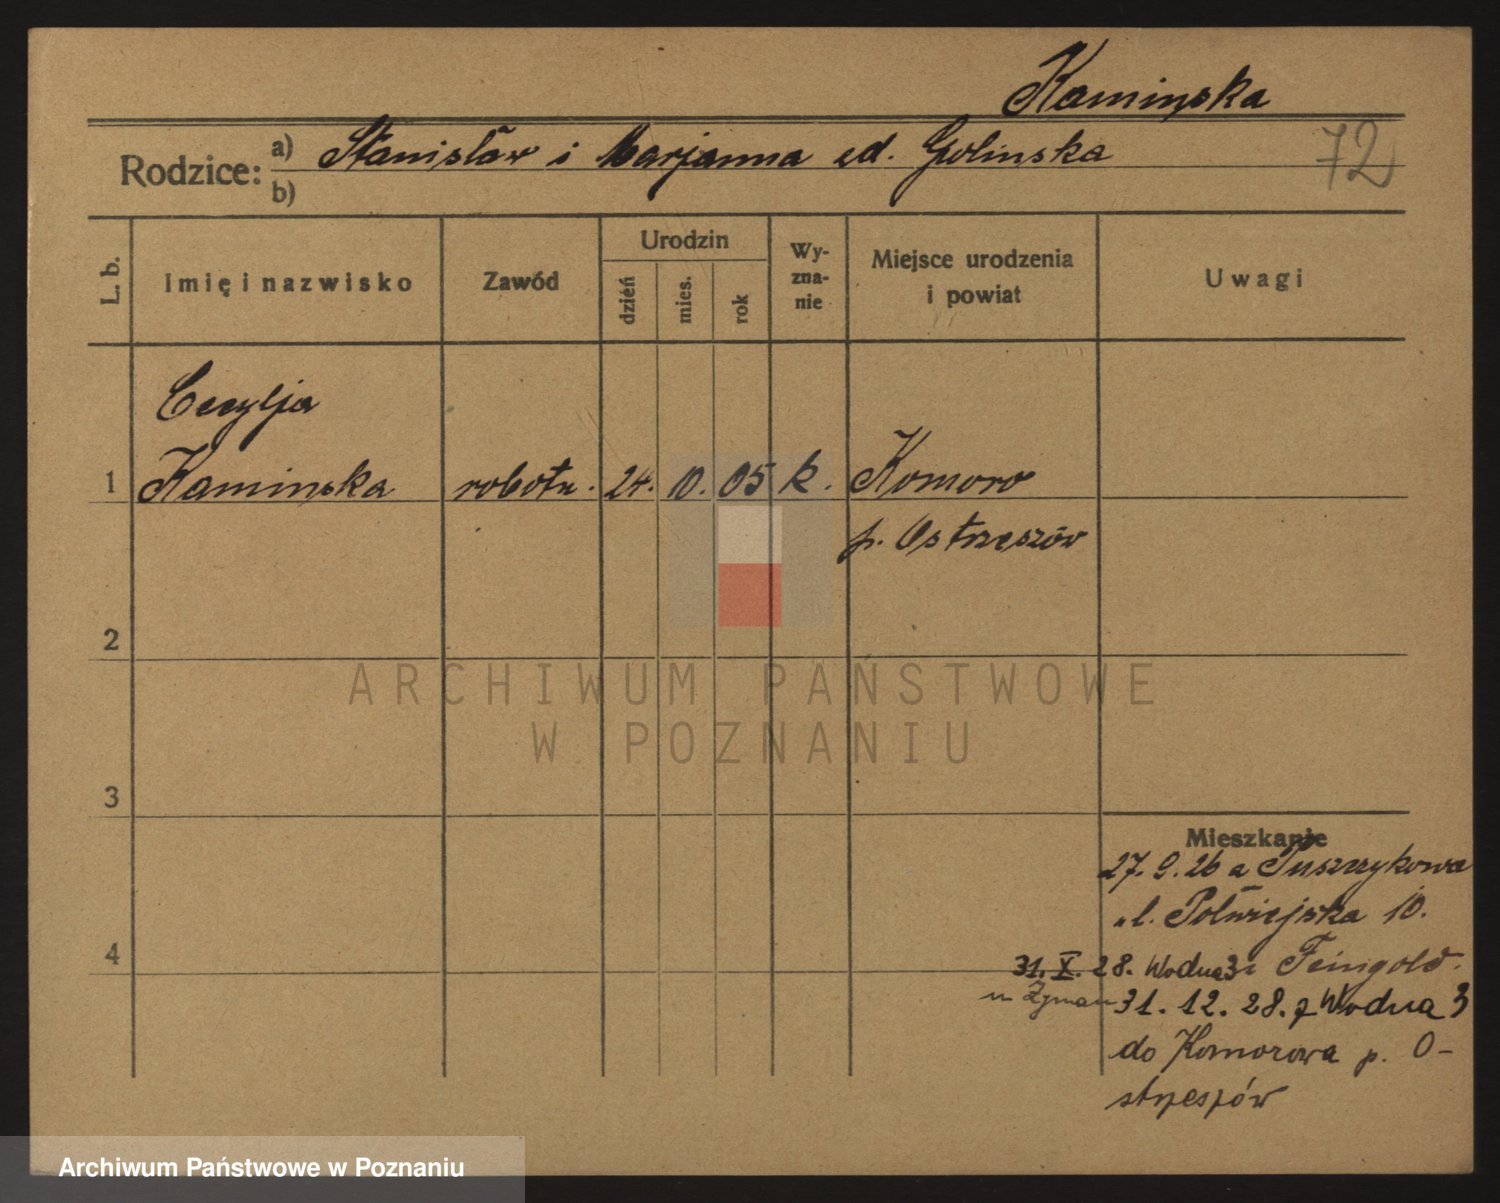 Kamińska
Rodzice: a) Stanisław i Marjanna ed. Golinska
b)
72
L. b.
Imię i nazwisko
Zawód
Urodzin
dzień
mies.
rok
Wy-
zna-
nie
Miejsce urodzenia
i powiat
Uwagi
Cecylja
1 Kamińska robotn. 24. 10. 05 k. Komoro
p. Ostrzeszów
2
ARCHIWUM PAŃSTWOWE
W POZNANIU
3
Mieszkanie
27. 9. 26 a
ul. Półwiejska 10.
4
31. X. 28. Wodna 3 Feingold.
31. 12. 28. z Wodna 3
do Komorowa p. O-
strzeszów
Archiwum Państwowe w Poznaniu